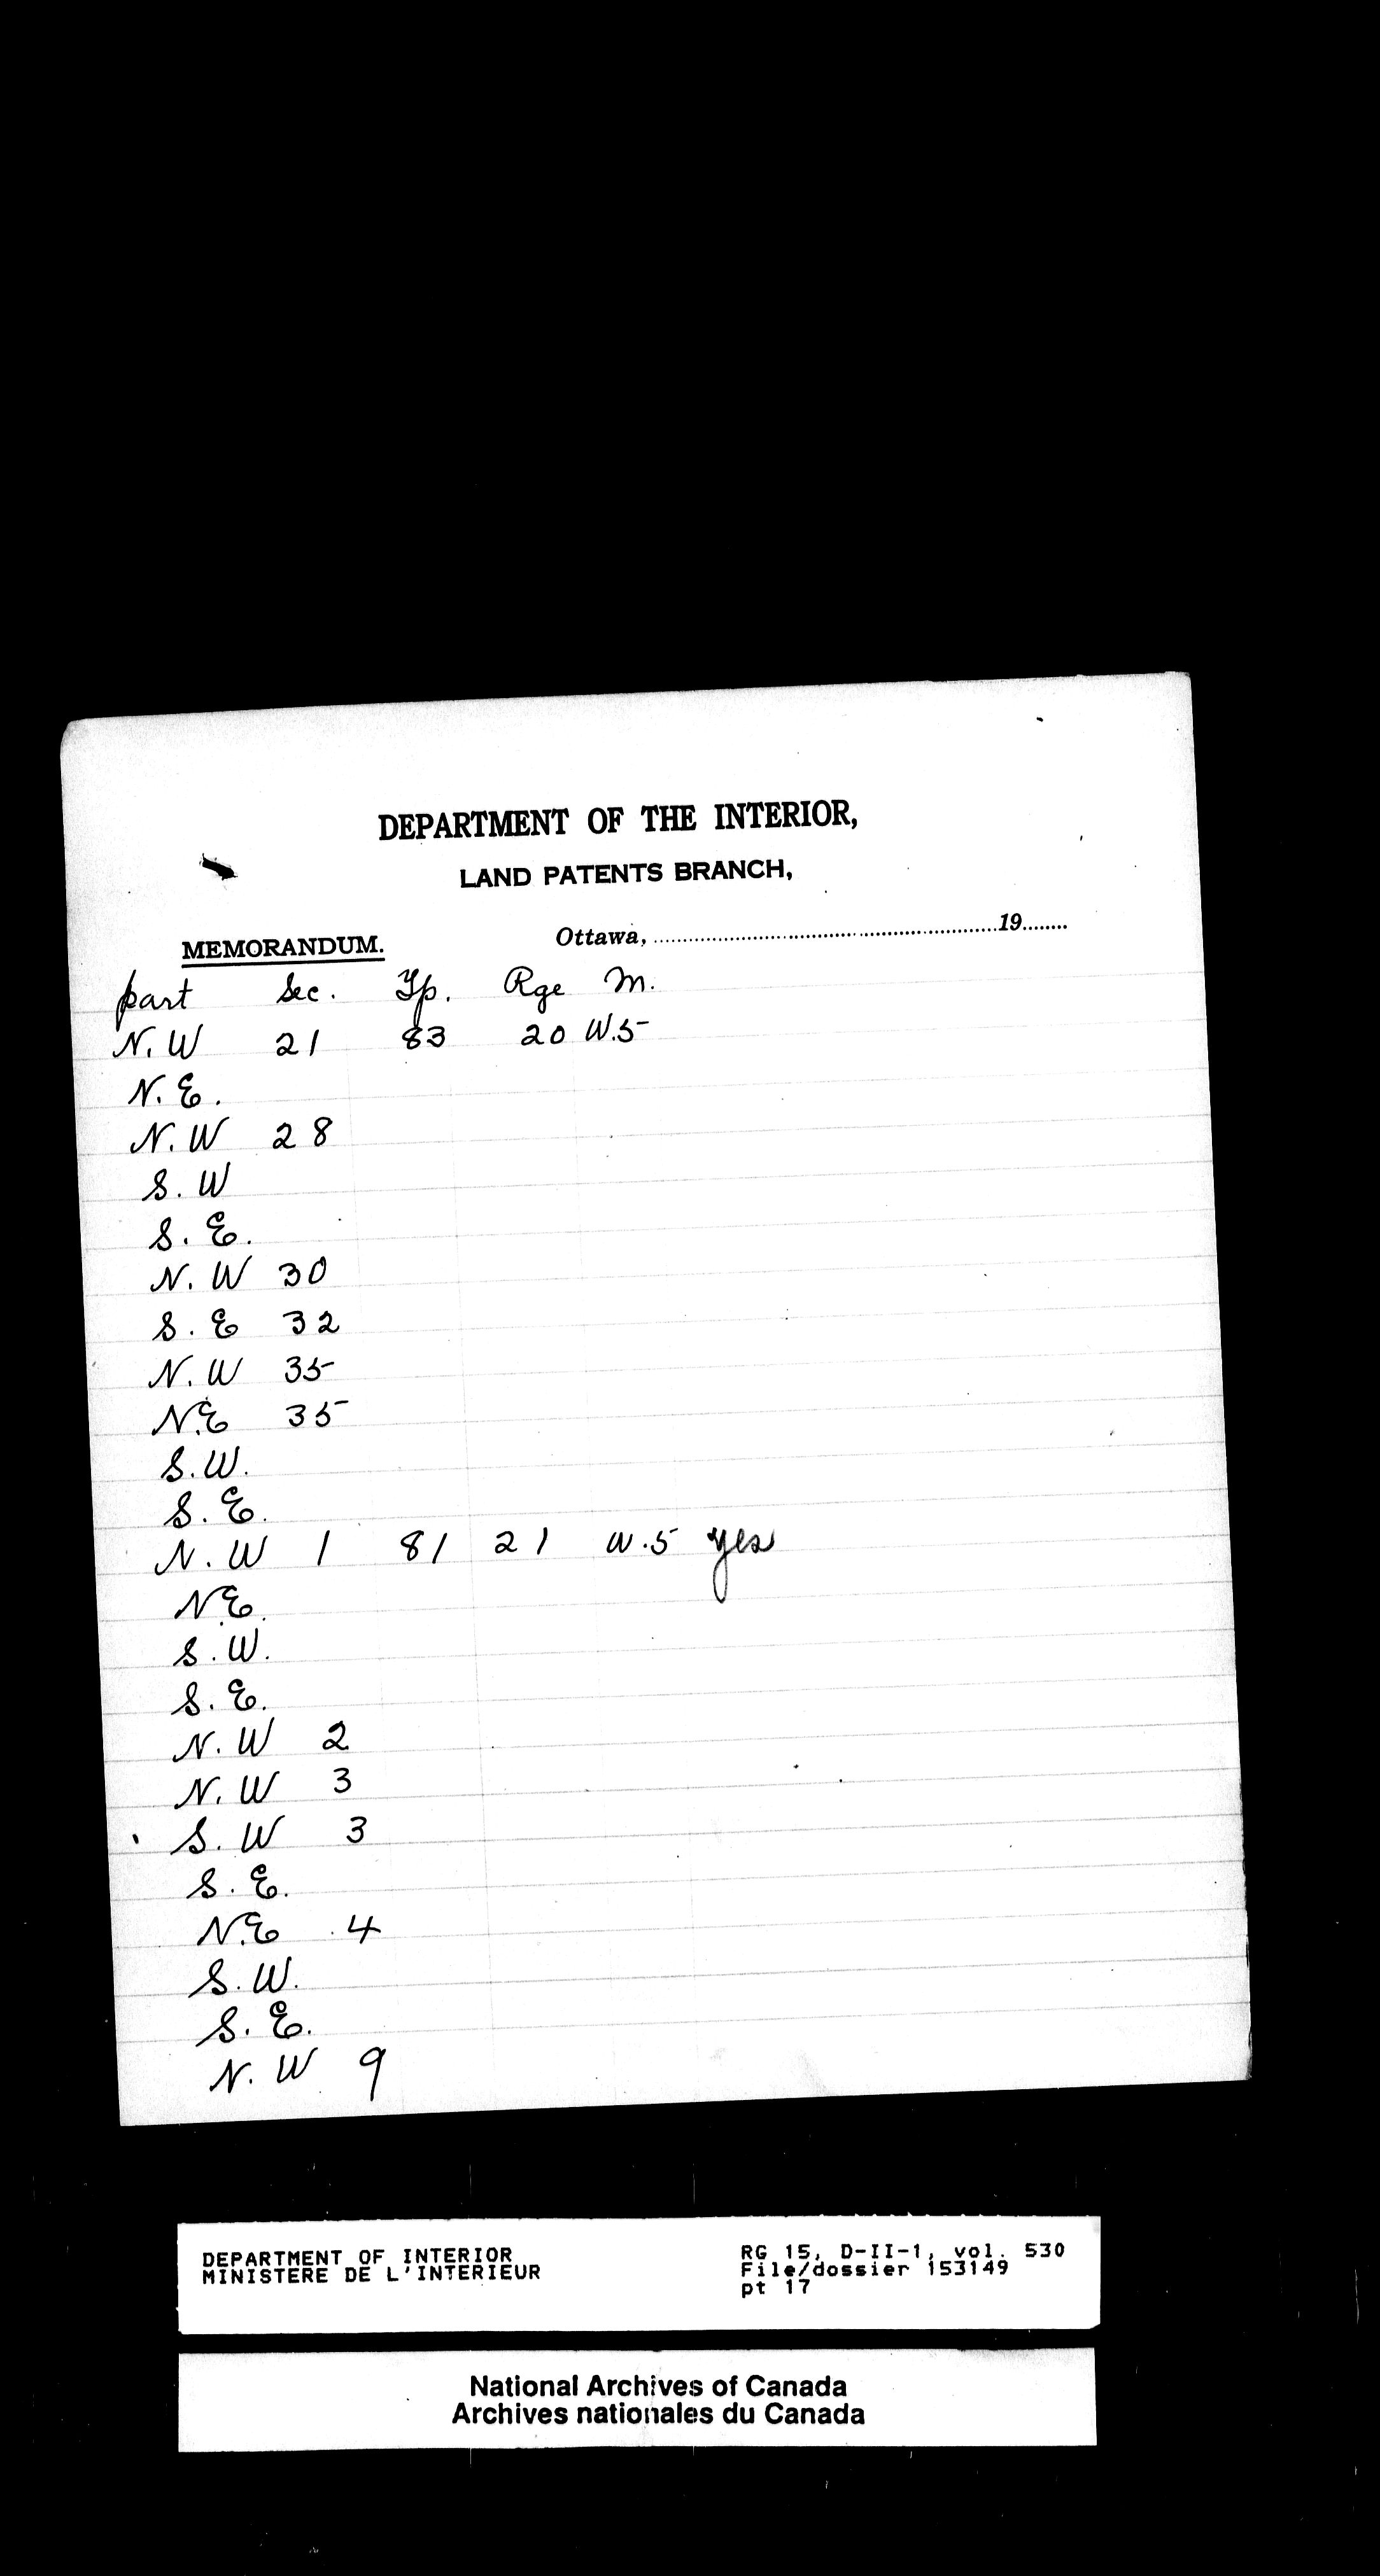 DEPARTMENT OF THE INTERIOR,
LAND PATENTS BRANCH,
MEMORANDUM. Ottawa, ..................................................19........
part Sec. Tp. Rge M.
N.W 21 83 20 W.5
N.E.
N.W 28
S.W
S.E.
N.W 30
S.E 32
N.W 35
N.E 35
S.W.
S.E.
N.W 1 81 21 W.5 yes
N.E.
S.W.
S.E.
N.W 2
N.W 3
S.W 3
S.E.
N.E 4
S.W.
S.E.
N.W 9
DEPARTMENT OF INTERIOR
MINISTERE DE L'INTERIEUR
RG 15, D-II-1, vol. 530
File/dossier 153149
pt 17
National Archives of Canada
Archives nationales du Canada